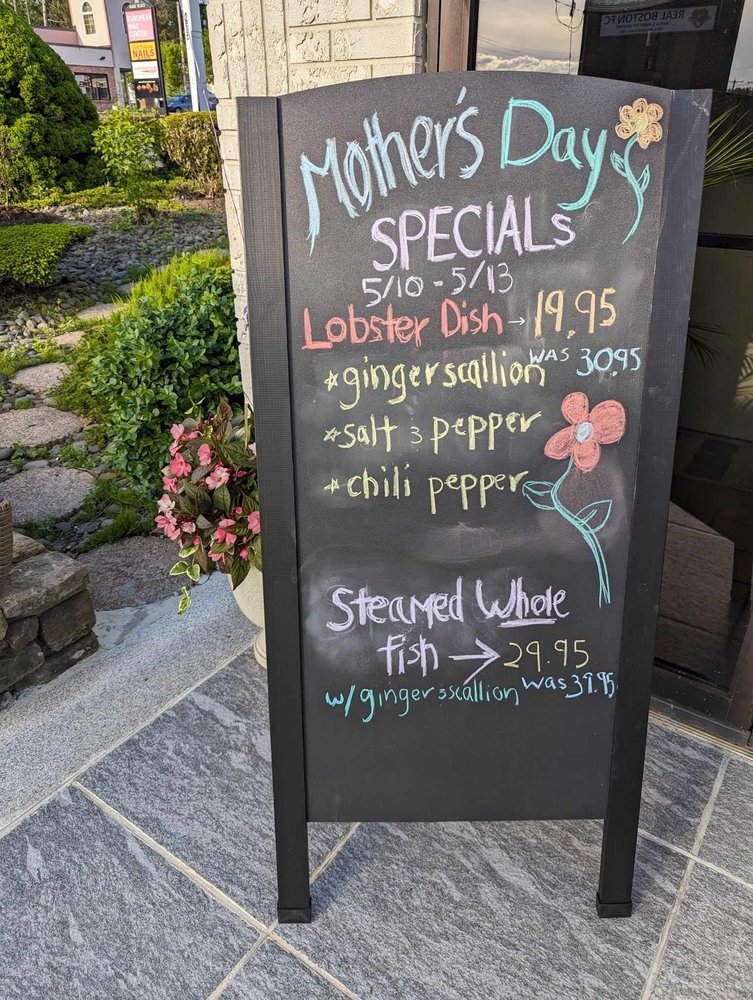 EUROPEAN
WAX
CENTER
NAILS
REAL BOSTON FC
Mother's Day
SPECIALS
5/10 - 5/13
Lobster Dish → 19.95
was 30.95
*ginger scallion
*salt & pepper
*chili pepper
Steamed Whole
fish → 29.95
w/ ginger & scallion was 39.95